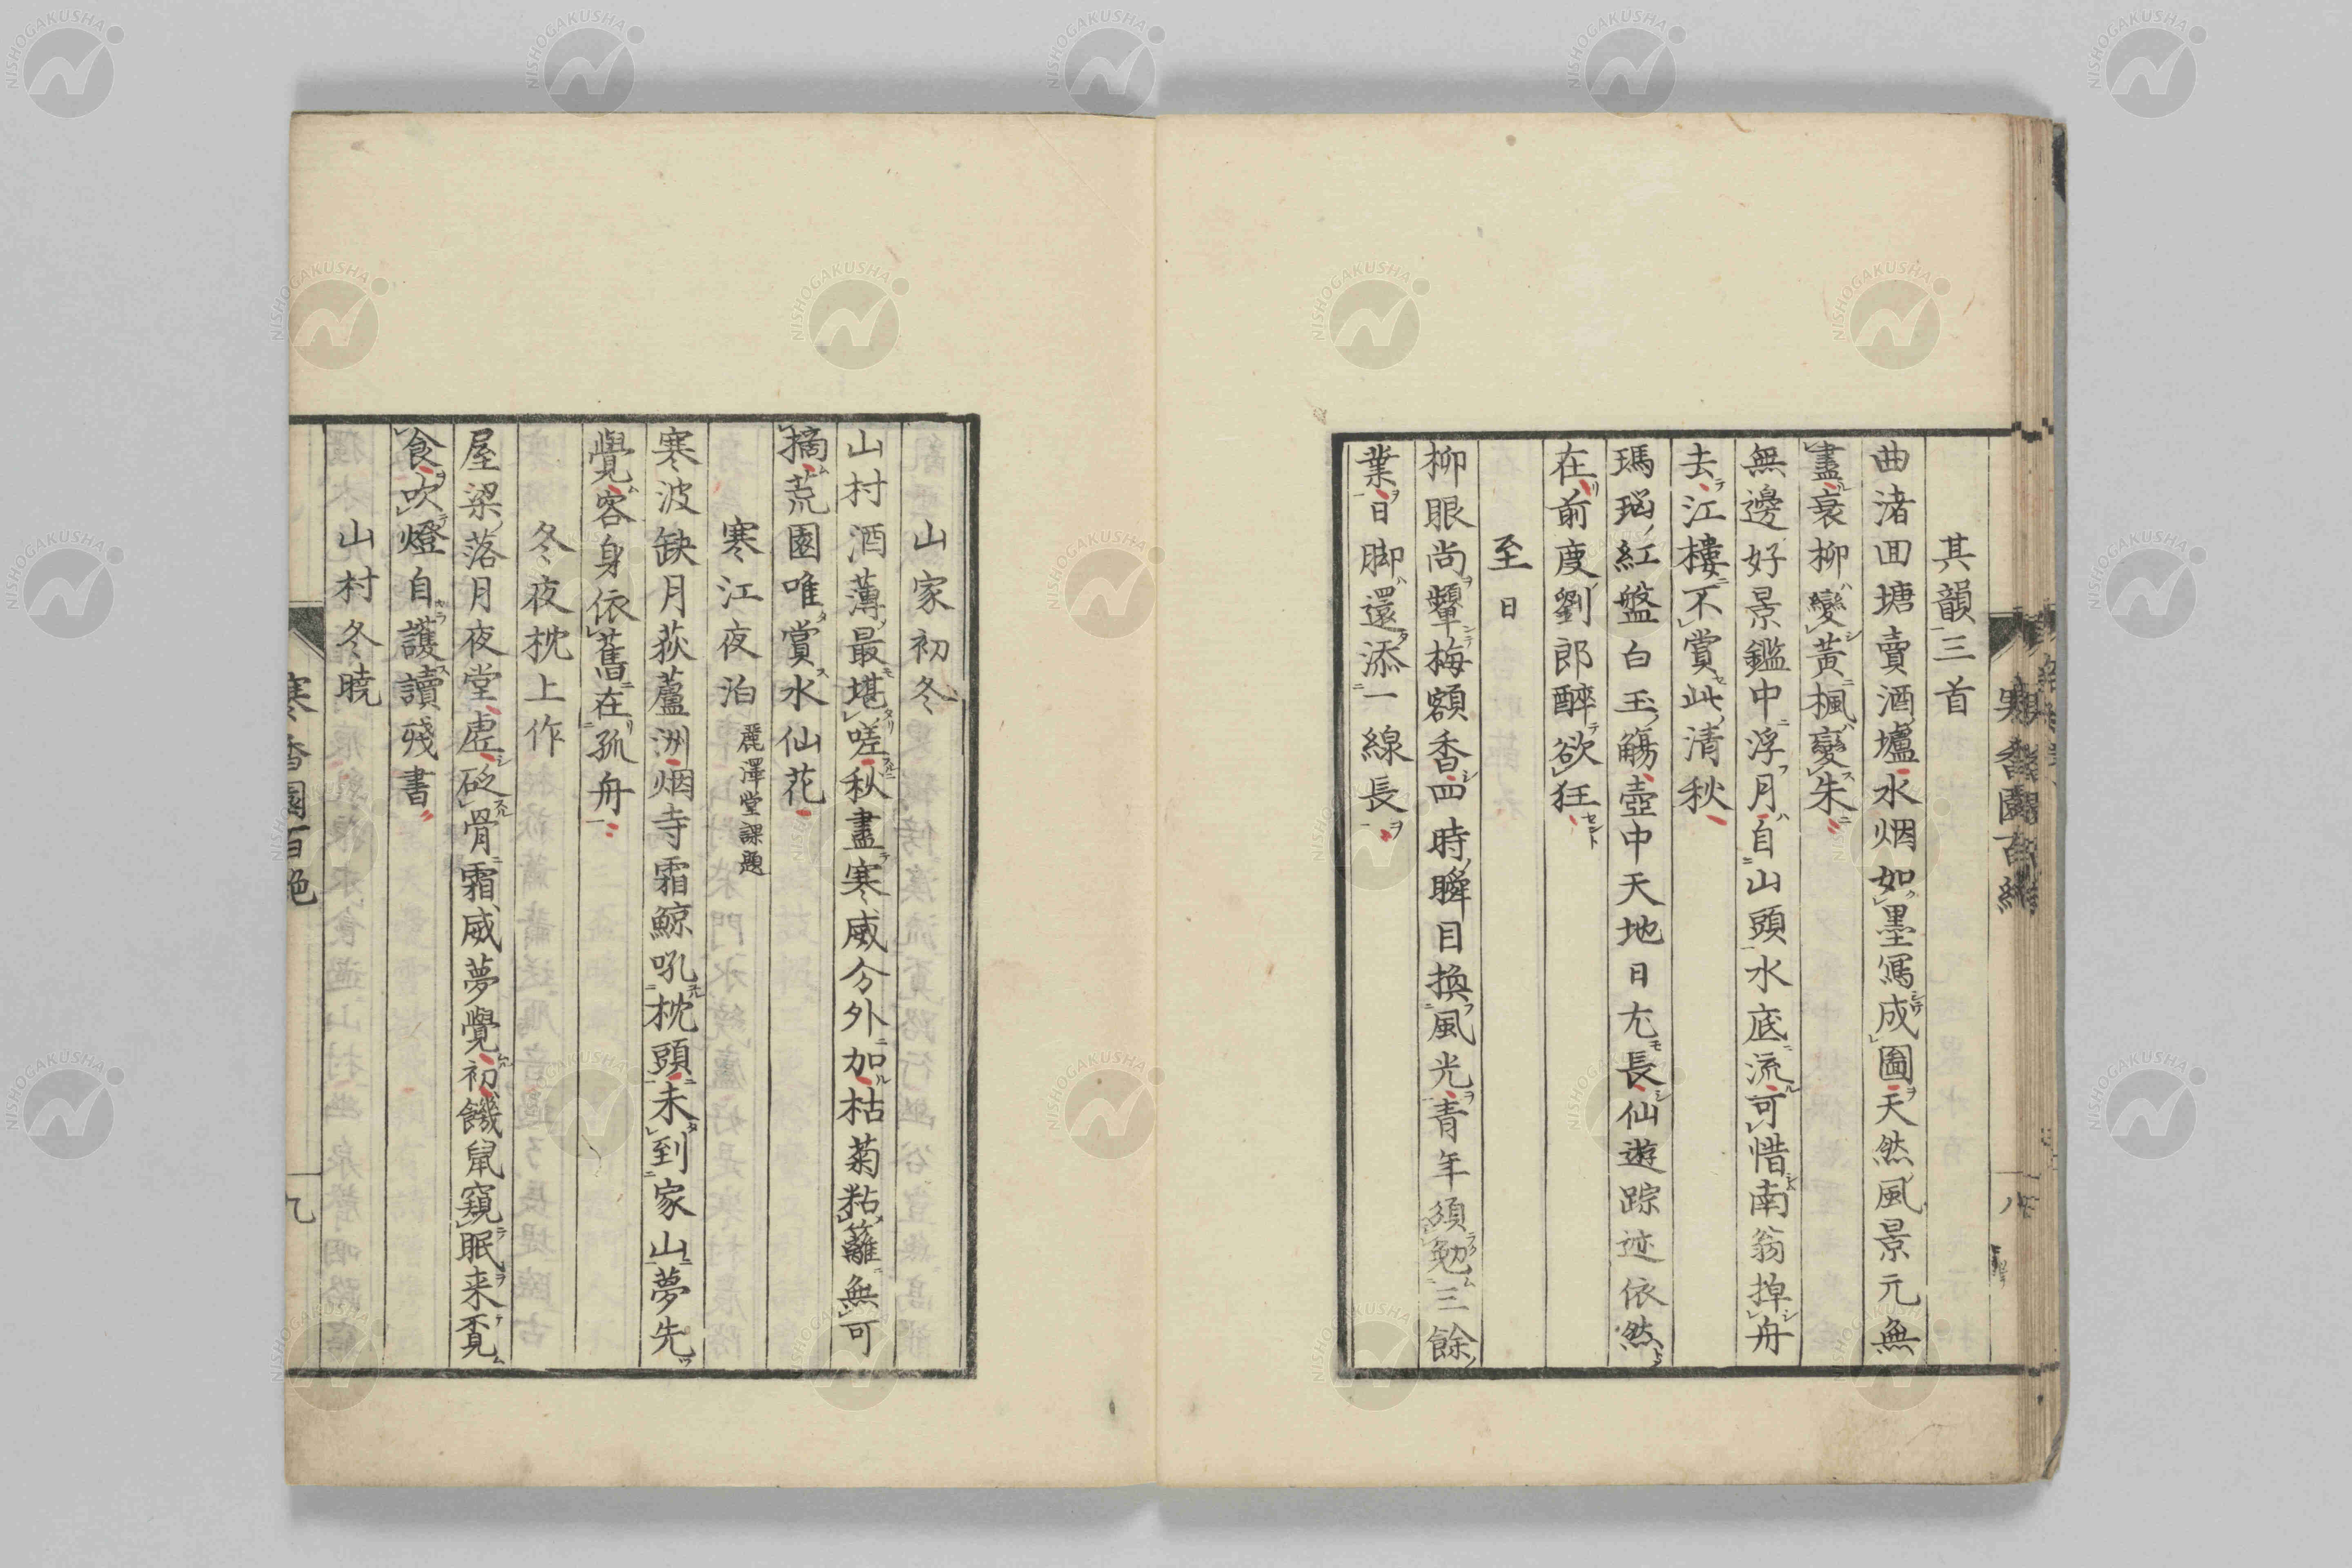 其韻三首
曲渚回塘賣酒壚水烟如墨寫成圖天然風景元無
盡衰柳變黃楓變朱
無邊好景鑑中浮月自山頭水底流可惜南翁掉舟
去江樓不賞此清秋
瑪瑙紅盤白玉觴壺中天地日尤長仙遊踪迹依然
在前度劉郎醉欲狂
至日
柳眼尚顰梅額香四時瞬目換風光青年須勉三餘
業日脚還添一線長
山家初冬
山村酒薄最堪嗟秋盡寒威分外加枯菊粘籬無可
摘荒園唯賞水仙花
寒江夜泊 麗澤堂課題
寒波缺月荻蘆洲烟寺霜鯨吼枕頭未到家山夢先
覺客身依舊在孤舟
冬夜枕上作
屋梁落月夜堂虛砭骨霜威夢覺初饑鼠窺眠来覓
食吹燈自護讀殘書
山村冬曉
寒香園百絶
九